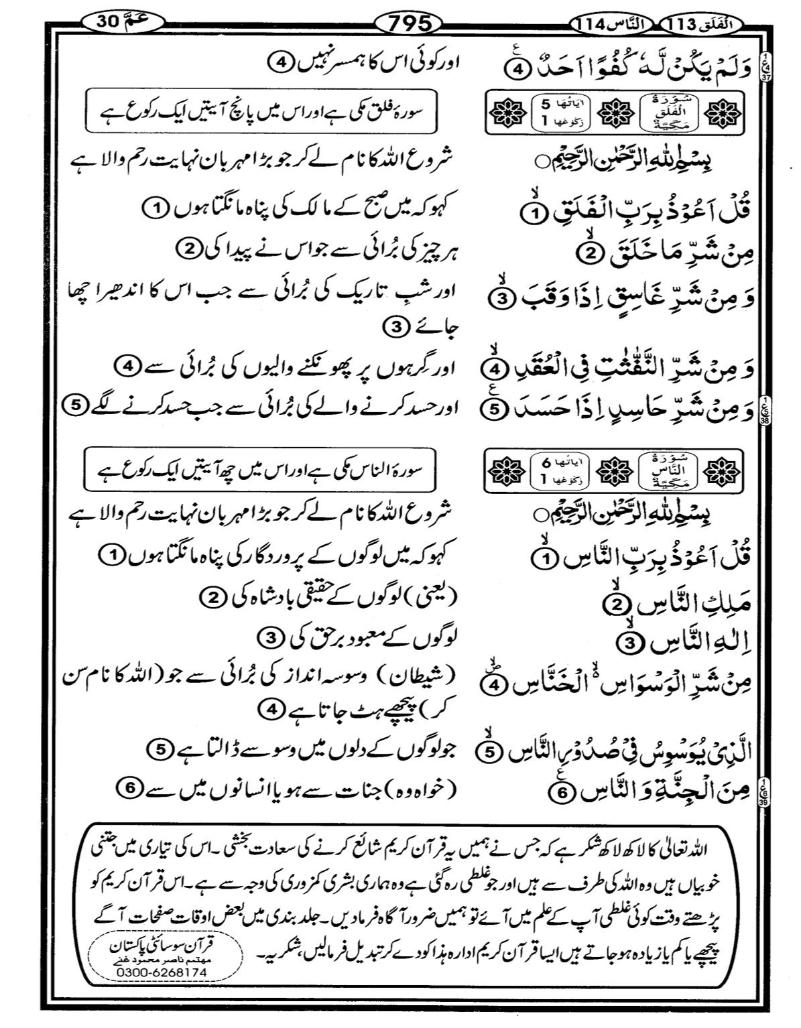 الفلق 113 الناس 114 795 عمّ 30
وَلَمْ يَكُنْ لَّهٗ كُفُوًا اَحَدٌ ④ اور کوئی اس کا ہمسر نہیں ④
سُوْرَةُ الْفَلَقِ مَكِّيَّةٌ اٰيَاتُهَا 5 رُكُوْعُهَا 1 سورۂ فلق مکی ہے اور اس میں پانچ آیتیں ایک رکوع ہے
بِسْمِ اللّٰهِ الرَّحْمٰنِ الرَّحِيْمِ ○ شروع اللہ کا نام لے کر جو بڑا مہربان نہایت رحم والا ہے
قُلْ اَعُوْذُ بِرَبِّ الْفَلَقِ ① کہو کہ میں صبح کے مالک کی پناہ مانگتا ہوں ①
مِنْ شَرِّ مَا خَلَقَ ② ہر چیز کی بُرائی سے جو اس نے پیدا کی ②
وَمِنْ شَرِّ غَاسِقٍ اِذَا وَقَبَ ③ اور شبِ تاریک کی بُرائی سے جب اس کا اندھیرا چھا
جائے ③
وَمِنْ شَرِّ النَّفّٰثٰتِ فِى الْعُقَدِ ④ اور گِرہوں پر پھونکنے والیوں کی بُرائی سے ④
وَمِنْ شَرِّ حَاسِدٍ اِذَا حَسَدَ ⑤ اور حسد کرنے والے کی بُرائی سے جب حسد کرنے لگے ⑤
سُوْرَةُ النَّاسِ مَكِّيَّةٌ اٰيَاتُهَا 6 رُكُوْعُهَا 1 سورۂ الناس مکی ہے اور اس میں چھ آیتیں ایک رکوع ہے
بِسْمِ اللّٰهِ الرَّحْمٰنِ الرَّحِيْمِ ○ شروع اللہ کا نام لے کر جو بڑا مہربان نہایت رحم والا ہے
قُلْ اَعُوْذُ بِرَبِّ النَّاسِ ① کہو کہ میں لوگوں کے پروردگار کی پناہ مانگتا ہوں ①
مَلِكِ النَّاسِ ② (یعنی) لوگوں کے حقیقی بادشاہ کی ②
اِلٰهِ النَّاسِ ③ لوگوں کے معبود برحق کی ③
مِنْ شَرِّ الْوَسْوَاسِ الْخَنَّاسِ ④ (شیطان) وسوسہ انداز کی بُرائی سے جو (اللہ کا نام سن
کر) پیچھے ہٹ جاتا ہے ④
الَّذِىْ يُوَسْوِسُ فِىْ صُدُوْرِ النَّاسِ ⑤ جو لوگوں کے دلوں میں وسوسے ڈالتا ہے ⑤
مِنَ الْجِنَّةِ وَالنَّاسِ ⑥ (خواہ وہ) جنات سے ہو یا انسانوں میں سے ⑥
اللہ تعالیٰ کا لاکھ لاکھ شکر ہے کہ جس نے ہمیں یہ قرآن کریم شائع کرنے کی سعادت بخشی۔ اس کی تیاری میں جتنی
خوبیاں ہیں وہ اللہ کی طرف سے ہیں اور جو غلطی رہ گئی ہے وہ ہماری بشری کمزوری کی وجہ سے ہے۔ اس قرآن کریم کو
پڑھتے وقت کوئی غلطی آپ کے علم میں آئے تو ہمیں ضرور آگاہ فرمادیں۔ جلد بندی میں بعض اوقات صفحات آگے
پیچھے یا کم یا زیادہ ہو جاتے ہیں ایسا قرآن کریم ادارہ ہذا کو دے کر تبدیل فرمالیں، شکریہ۔
قرآن سوسائٹی پاکستان
مہتمم ناصر محمود غنی
0300-6268174